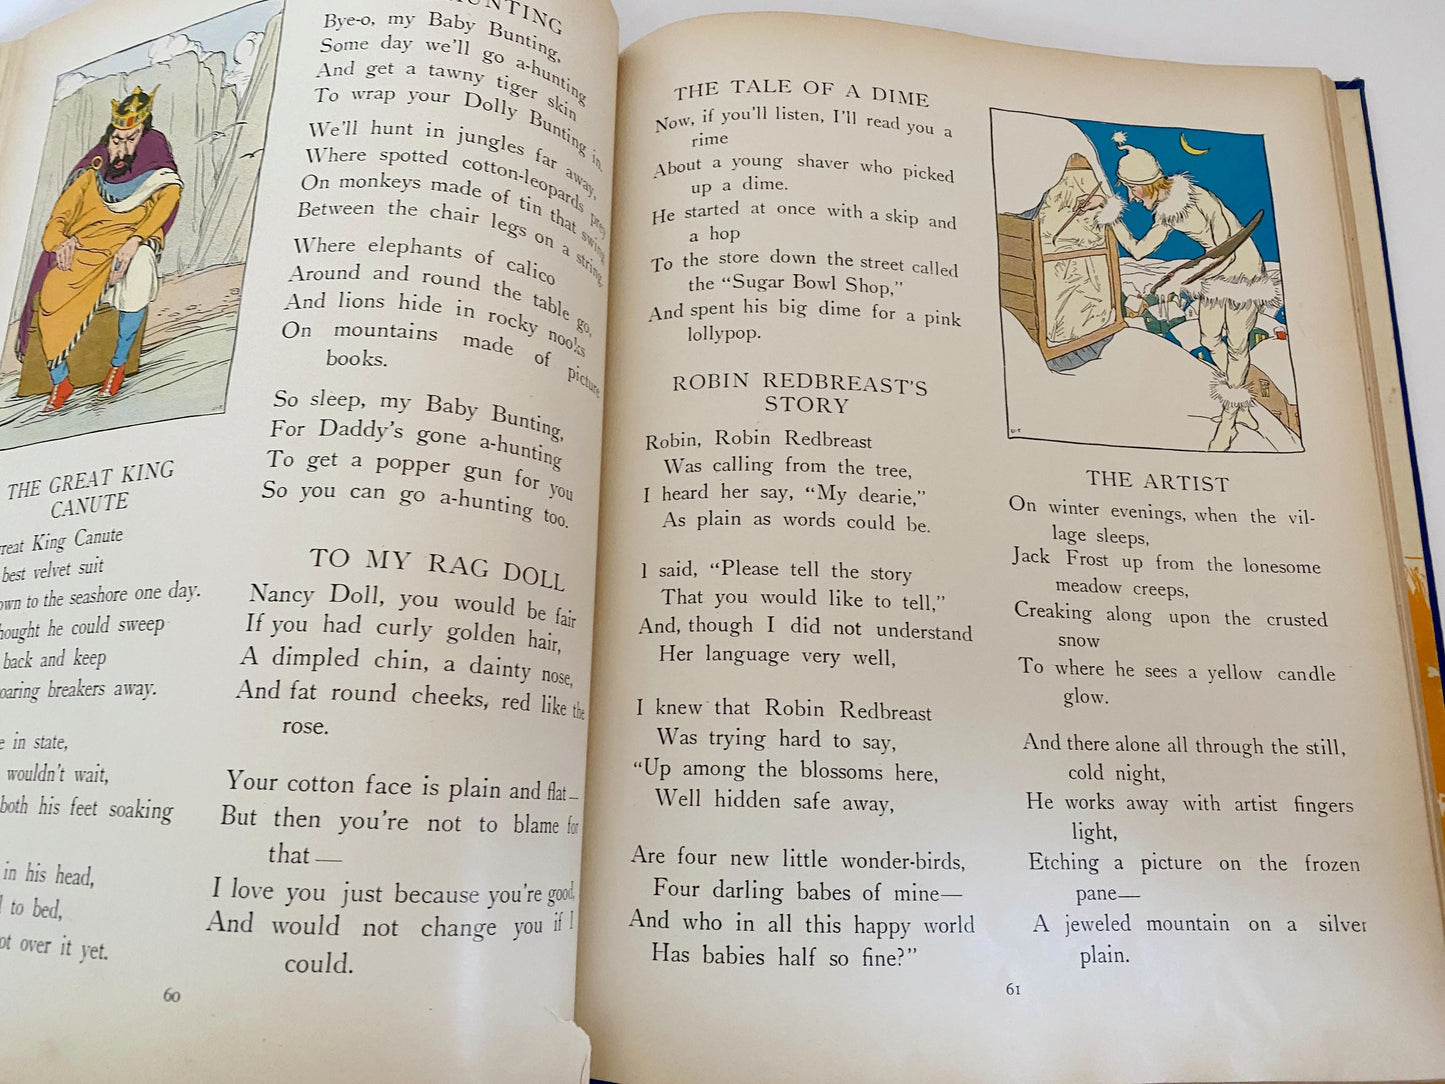 THE GREAT KING
CANUTE
King Canute
best velvet suit
to the seashore one day.
he could sweep
back and keep
breakers away.
in state,
wouldn't wait,
both his feet soaking
in his head,
to bed,
over it yet.
60
Bye-o, my Baby Bunting,
Some day we'll go a-hunting
And get a tawny tiger skin
To wrap your Dolly Bunting in.
We'll hunt in jungles far away,
Where spotted cotton-leopards prey
On monkeys made of tin that swing
Between the chair legs on a string.
Where elephants of calico
Around and round the table go,
And lions hide in rocky nooks
On mountains made of picture
books.
So sleep, my Baby Bunting,
For Daddy's gone a-hunting
To get a popper gun for you
So you can go a-hunting too.
TO MY RAG DOLL
Nancy Doll, you would be fair
If you had curly golden hair,
A dimpled chin, a dainty nose,
And fat round cheeks, red like the
rose.
Your cotton face is plain and flat—
But then you're not to blame for
that—
I love you just because you're good,
And would not change you if I
could.
THE TALE OF A DIME
Now, if you'll listen, I'll read you a
rime
About a young shaver who picked
up a dime.
He started at once with a skip and
a hop
To the store down the street called
the "Sugar Bowl Shop,"
And spent his big dime for a pink
lollypop.
ROBIN REDBREAST'S
STORY
Robin, Robin Redbreast
Was calling from the tree,
I heard her say, "My dearie,"
As plain as words could be.
I said, "Please tell the story
That you would like to tell,"
And, though I did not understand
Her language very well,
I knew that Robin Redbreast
Was trying hard to say,
"Up among the blossoms here,
Well hidden safe away,
Are four new little wonder-birds,
Four darling babes of mine—
And who in all this happy world
Has babies half so fine?"
THE ARTIST
On winter evenings, when the vil-
lage sleeps,
Jack Frost up from the lonesome
meadow creeps,
Creaking along upon the crusted
snow
To where he sees a yellow candle
glow.
And there alone all through the still,
cold night,
He works away with artist fingers
light,
Etching a picture on the frozen
pane—
A jeweled mountain on a silver
plain.
61